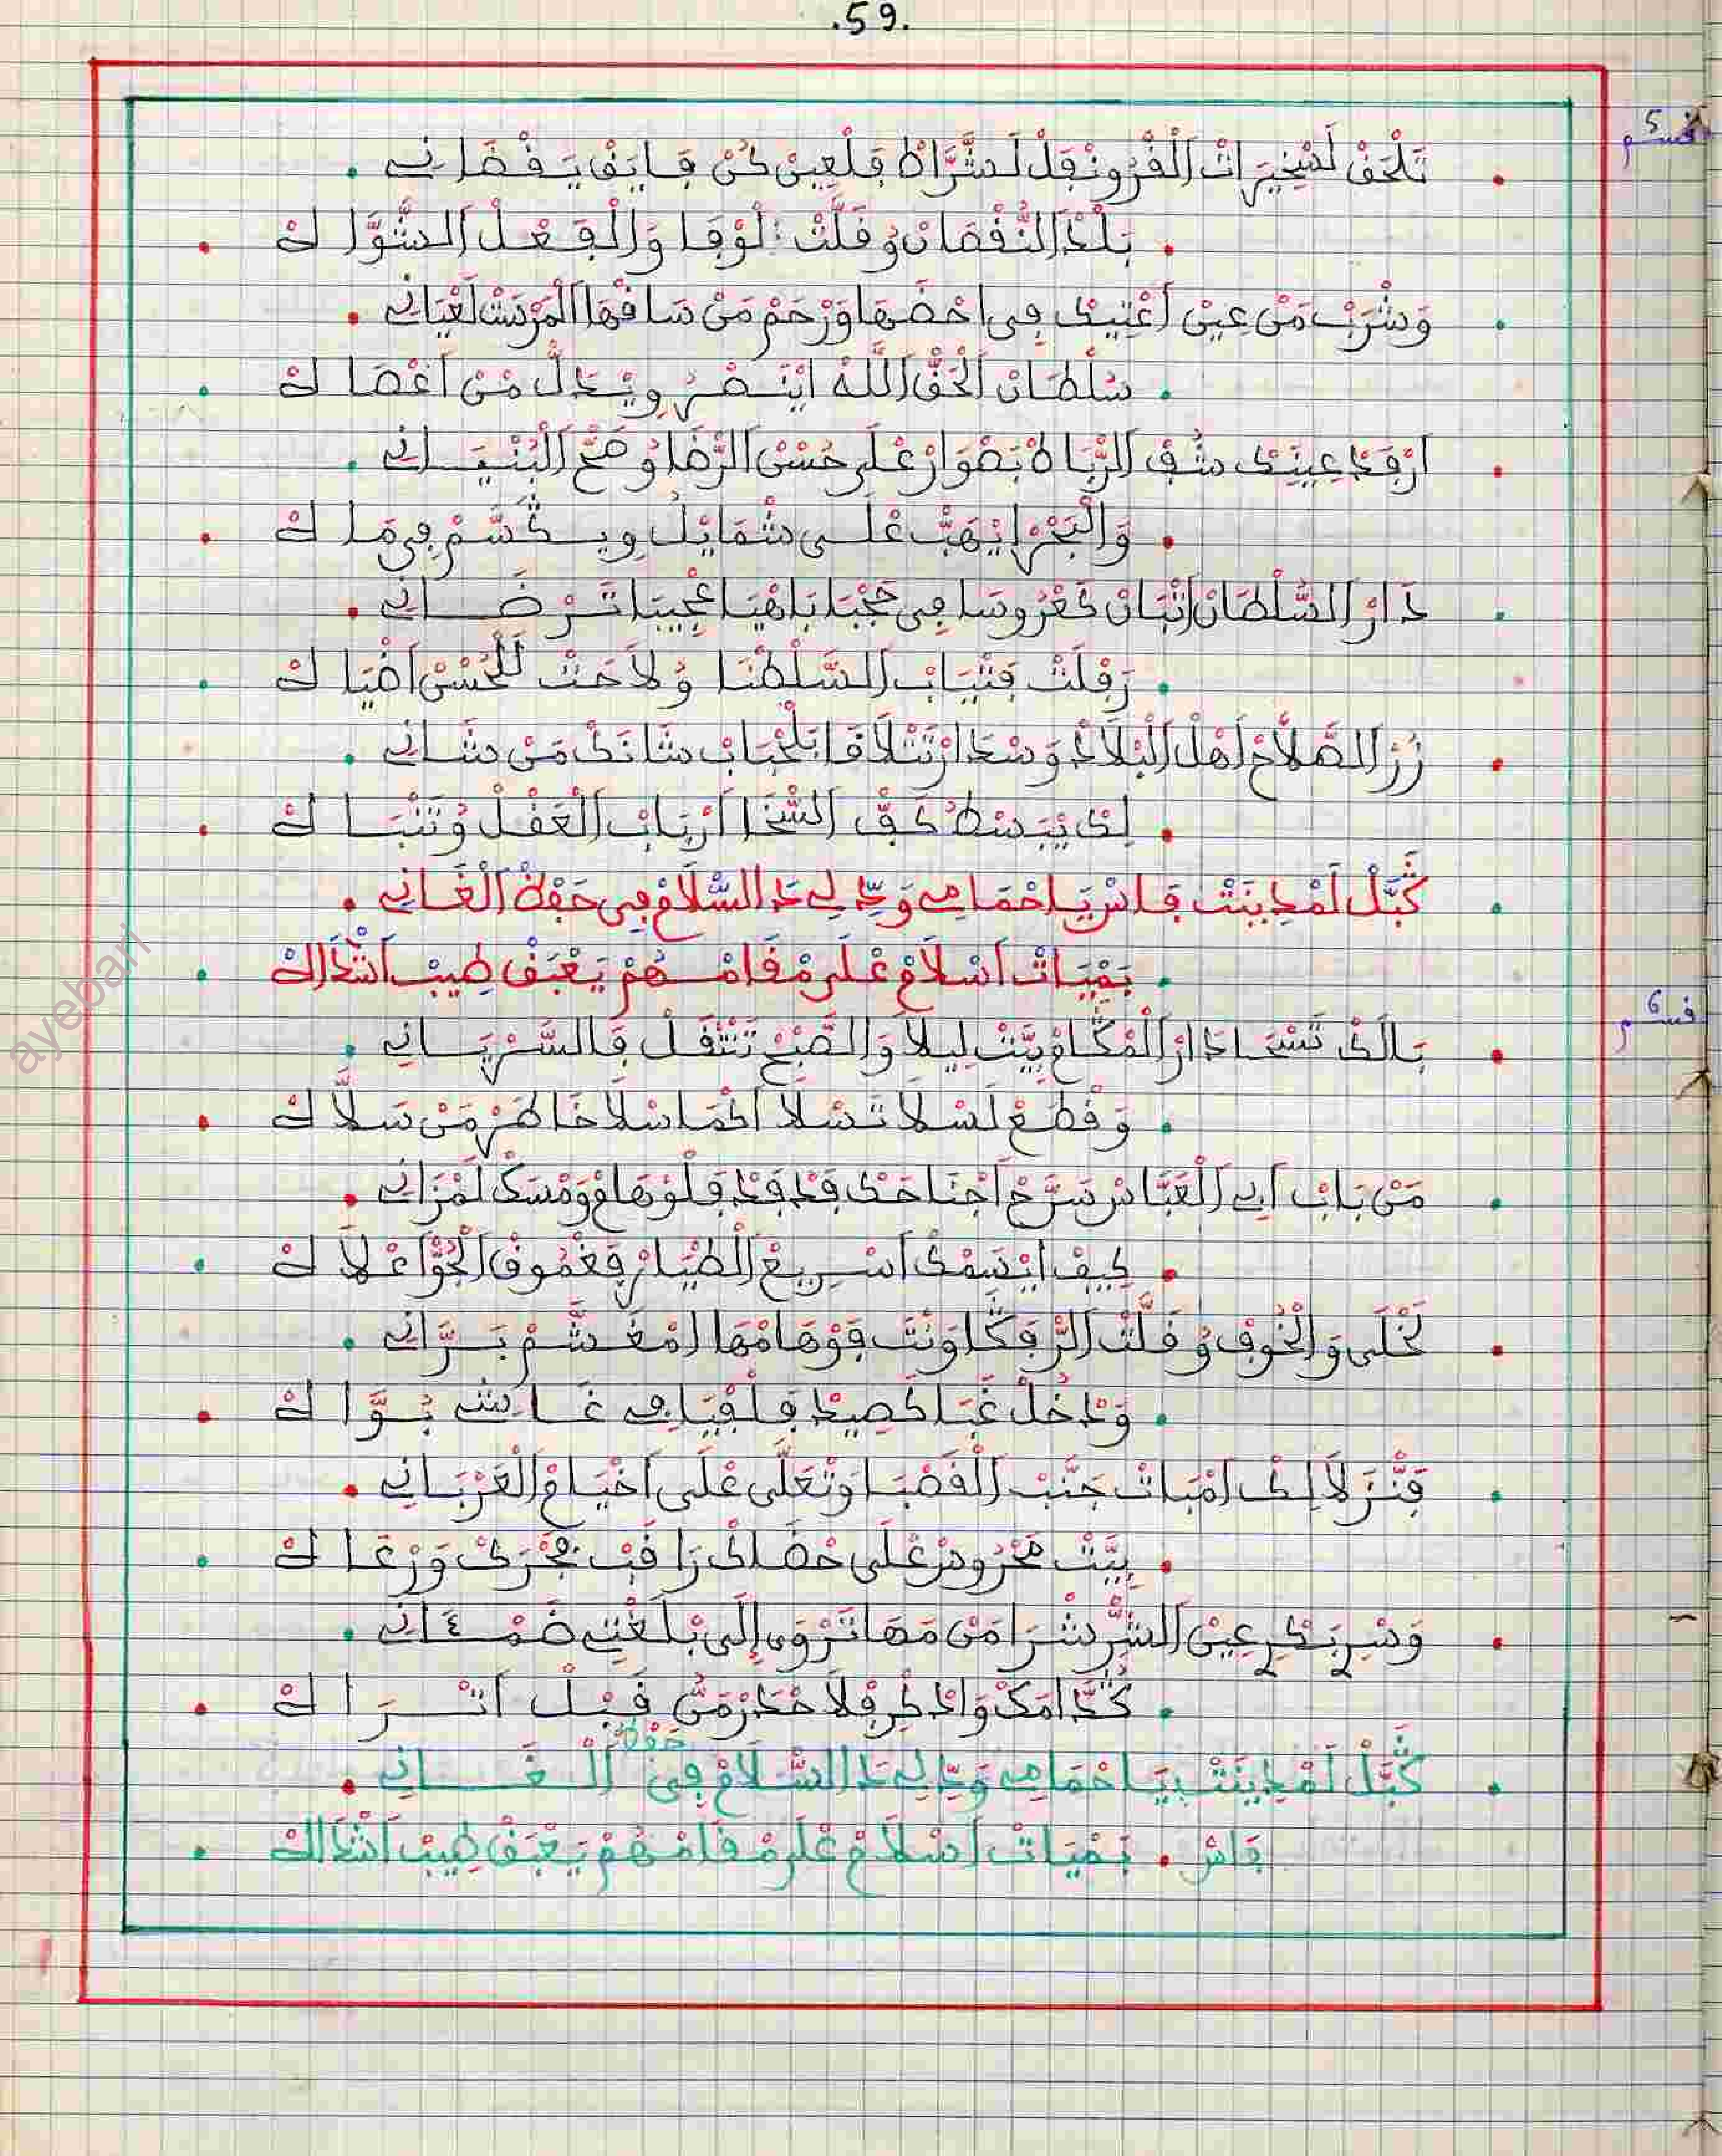 .59.
قسم 5
تَلْحَقْ لَشْجِيرَاتْ اَلْقْرُونْقَلْ لَشَّرَّاطْ فَلْعِينْ كُنْ فَايَقْ يَقْضَانِي .
. بَلْدْ اَلنُّقْصَانْ وُقَلَّتْ لُوفَا وَالْفَعْلْ اَلشَّوَّاكْ .
وَشْرَبْ مَنْ عِينْ اَعْتِيكْ فِي احْضَهَا وَرْحَمْ مَنْ سَاقْهَا اَلْمَرْسَتْ لَعْيَانِي .
. سُلْطَانْ اَلْحَقّْ اَللَّهْ ايْنَصْرُ وِيْدَلّْ مْنْ اَعْصَاكْ .
ارْفَدْ عِينِكْ شُفْ اَلرّْبَاطْ بَصْوَارْ عْلَى حُسْنْ اَلرّْضَا وُصَحّْ اَلْبُنْيَانِي .
. وَالْبَحْرْ ايْهَبّْ عْلَى شْمَايْلُ وِيكَسَّمْ فِي مَاكْ .
دَارْ اَلسُّلْطَانْ اتْبَانْ كَعْرُوسَا فِي حَجْبَا بَاهْيَا عْجِيبَا تَرْضَانِي .
. رَفْلَتْ فَتْيَابْ اَلسَّلْطْنَا وُلَاحَتْ لَلْحُسْنْ اَضْيَاكْ .
زُرْ اَلصُّلَّاحْ اَهْلْ اَلْبْلَادْ وَسْدَارْ تَتْلَاقَا بَلْحْبَابْ شَانَكْ مَنْ شَانِي .
. لِكْ يَبَسْطُ كَفّْ اَلسّْخَا اَرْبَابْ اَلْعَقْلْ وُتَنْبَاكْ .
كَبَّلْ لَمْدِينَتْ فَاسْ يَا حْمَامِي وَدِّي لِي دَ السّْلَامْ فِي حَفْظْ اَلْغَانِي .
. بَمْيَاتْ اَسْلَامْ عْلَى مْقَامْهُمْ يَعْبَقْ طِيبْ اَشْدَاكْ .
قسم 6
بَالَكْ تَنْسَحَا دَارْ اَلْمْكَامْ بِيَّتْ لِيلَا وَالصَّبْحْ تَنْتْقَلْ فَالسَّرْيَانِي .
. وَقْطَعْ لَسْلَا تَسْلَا اَكْمَا سْلَا خَاطَرْ مَنْ سَلَّاكْ .
مَنْ بَابْ اَبِي اَلْعَبَّاسْ سَرَّحْ اَجْنَاحَكْ فَدْفَدْ فَلُوهَامْ وَمْسَكْ لَمْزَانِي .
. كِيفْ ايْسَمْكْ اَسْرِيعْ اَلْطْيَارْ فَغْمُوقْ اَلْجُوّْ اَعْلَاكْ .
لَخْلَى وَالْخُوفْ وُقَلَّتْ اَلرَّفْكَا وَنْتَ فَوْهَامْهَا لَمْغَشَّمْ بَرَّانِي .
. وَدْخُلْ غَبَا كَصِيدْ فَلْفْيَافِي غَايَشْ بُوَّاكْ .
فَنَّزَلَا لِكْ اَمْبَاتْ جَنْبْ اَلْقَصْبَا وَتْعَلَّى عْلَى اَخْيَامْ اَلْعَرْبَانِي .
. بِيَّتْ مَحْرُوسْ عْلَى حْضَاكْ رَاقَبْ فَجْرَكْ وَرْعَاكْ .
وَسْرِ بَكْرِ عِينْ اَلشّْرْشْرَا مَنْ مَهَا تَرْوَى إِلَى بْلَغْتِ ضَمْئَانِي .
. كُدَّامَكْ وَادْ ظْرِفْ لَاحْدَرْ مَنُّ قَبْلْ اَتْرَاكْ .
كَبَّلْ لَمْدِينَتْ يَا حْمَامِي وَدِّي لِي دَ السّْلَامْ فِي حَفْظْ اَلْغَانِي .
فَاسْ . بَمْيَاتْ اَسْلَامْ عْلَى مْقَامْهُمْ يَعْبَقْ طِيبْ اَشْدَاكْ .
ayebari